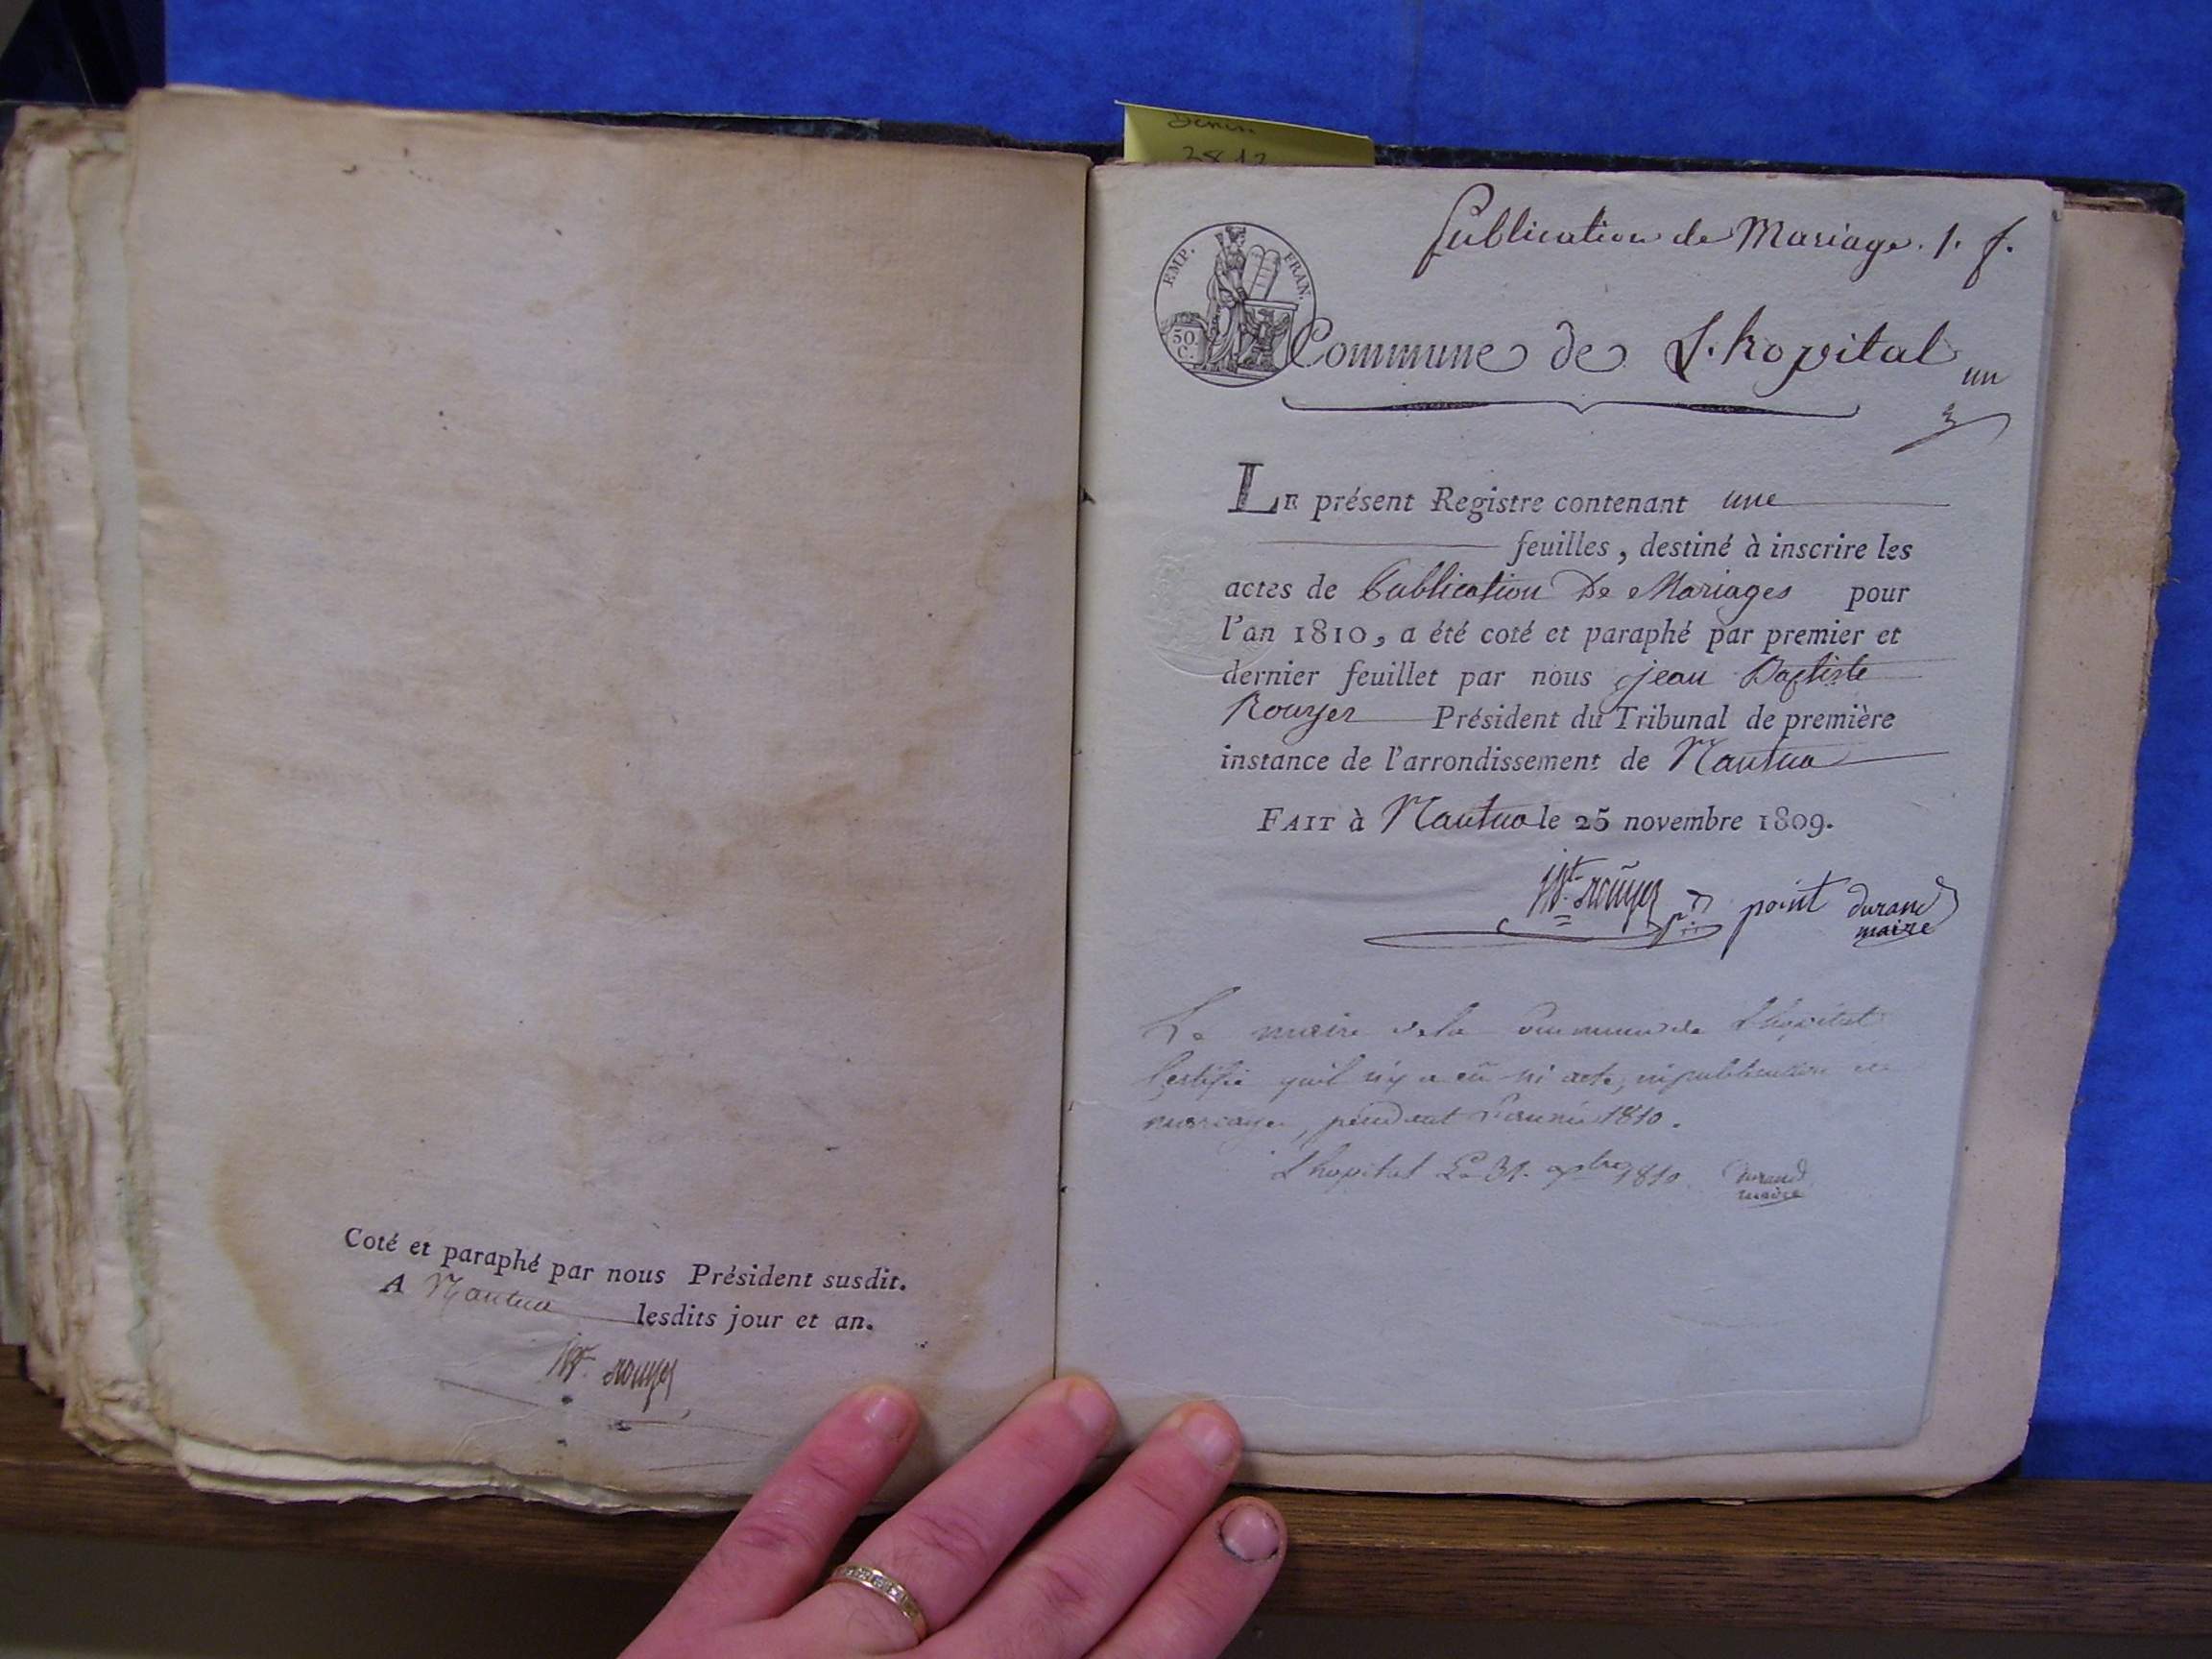 Coté et paraphé par nous Président susdit.
A Nantua lesdits jour et an.
rouyer
2812
Publication de Mariage. 1. f.
EMP. FRAN.
50
C.
Commune de L.hopital
un
LE présent Registre contenant une
feuilles, destiné à inscrire les
actes de Publication De Mariages pour
l'an 1810, a été coté et paraphé par premier et
dernier feuillet par nous jean Baptiste
Rouyer Président du Tribunal de première
instance de l'arrondissement de Nantua
FAIT à Nantua le 25 novembre 1809.
rouyer point durand
maire
Le maire de la Commune de Lhopital
Certifie quil n'y a eû ni acte, ni publication de
mariage, pendant l'année 1810.
Lhopital Le 31. 1810. Durand
maire